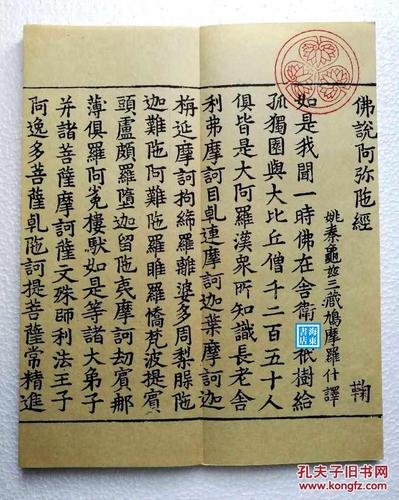 佛說阿弥陁經
姚秦龜茲三藏鳩摩羅什譯
鞠
如是我聞一時佛在舍衛 祇樹給
孤獨園與大比丘僧千二百五十人
俱皆是大阿羅漢眾所知識長老舍
利弗摩訶目乹連摩訶迦葉摩訶迦
栴延摩訶拘絺羅離婆多周梨脵陁
迦難陁阿難陁羅睺羅憍梵波提賓
頭盧頗羅墮迦留陁夷摩訶劫賓那
薄俱羅阿㝹樓馱如是等諸大弟子
并諸菩薩摩訶薩文殊師利法王子
阿逸多菩薩乹陁訶提菩薩常精進
海東書店
孔夫子旧书网